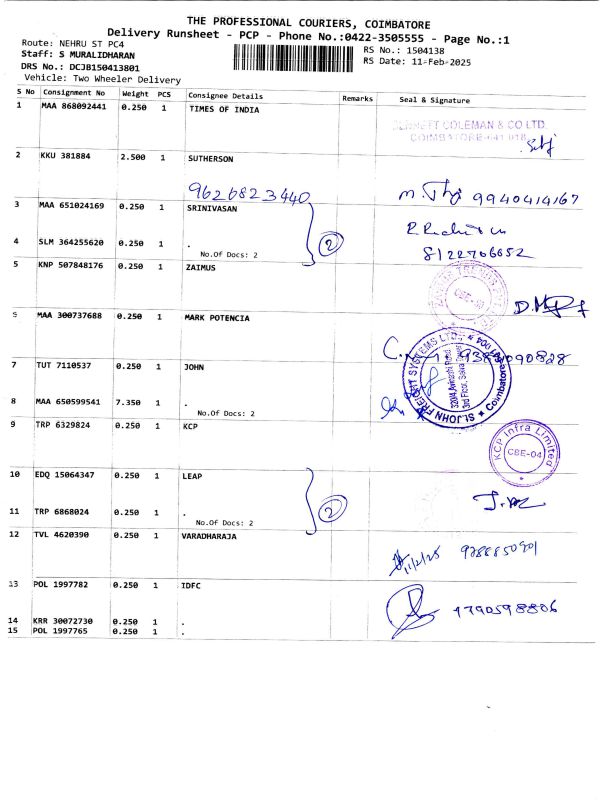 THE PROFESSIONAL COURIERS, COIMBATORE
Delivery Runsheet - PCP - Phone No.:0422-3505555 - Page No.:1
Route: NEHRU ST PC4
Staff: S MURALIDHARAN
DRS No.: DCJB150413801
Vehicle: Two Wheeler Delivery
RS No.: 1504138
RS Date: 11-Feb-2025
S No Consignment No Weight PCS Consignee Details Remarks Seal & Signature
1 MAA 868092441 0.250 1 TIMES OF INDIA
BENNETT COLEMAN & CO LTD.
COIMBATORE-641 018
2 KKU 381884 2.500 1 SUTHERSON
9626823440
9940414167
3 MAA 651024169 0.250 1 SRINIVASAN
4 SLM 364255620 0.250 1 .
No.Of Docs: 2
2
8122706652
5 KNP 507848176 0.250 1 ZAIMUS
6 MAA 300737688 0.250 1 MARK POTENCIA
7 TUT 7110537 0.250 1 JOHN
8 MAA 650599541 7.350 1 .
No.Of Docs: 2
ST.JOHN FREIGHT SYSTEMS LTD.
Coimbatore
9 TRP 6329824 0.250 1 KCP
KCP Infra Limited
CBE-04
10 EDQ 15064347 0.250 1 LEAP
11 TRP 6868024 0.250 1 .
No.Of Docs: 2
2
12 TVL 4620390 0.250 1 VARADHARAJA
11/2/25
13 POL 1997782 0.250 1 IDFC
1790598806
14 KRR 30072730 0.250 1 .
15 POL 1997765 0.250 1 .